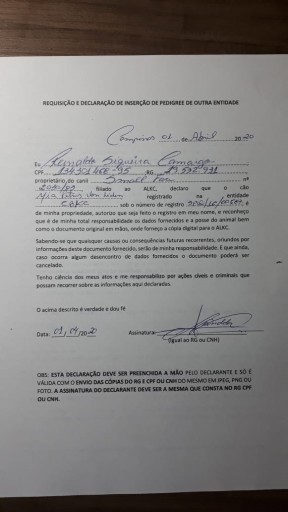 REQUISIÇÃO E DECLARAÇÃO DE INSERÇÃO DE PEDIGREE DE OUTRA ENTIDADE
01 de Abril 2020
Eu Reynaldo Siqueira Camargo,
CPF RG
proprietário do canil nº
filiado ao ALKC, declaro que o cão
registrado na entidade
sob o número de registro é
de minha propriedade, autorizo que seja feito o registro em meu nome, e reconheço
que é de minha total responsabilidade os dados fornecidos e a posse do animal bem
como o documento original em mãos, onde forneço a cópia digital para o ALKC.
Sabendo-se que quaisquer causas ou consequências futuras recorrentes, oriundos por
informações deste documento fornecido, serão de minha responsabilidade. E que ainda,
caso ocorra algum desencontro de dados fornecidos o documento poderá ser
cancelado.
Tenho ciência dos meus atos e me responsabilizo por ações cíveis e criminais que
possam recorrer sobre as informações aqui declaradas.
O acima descrito é verdade e dou fé
Data: 01/04/2020 Assinatura:
(Igual ao RG ou CNH)
OBS: ESTA DECLARAÇÃO DEVE SER PREENCHIDA A MÃO PELO DECLARANTE E SÓ É
VÁLIDA COM O ENVIO DAS CÓPIAS DO RG E CPF OU CNH DO MESMO EM JPEG, PNG OU
FOTO. A ASSINATURA DO DECLARANTE DEVE SER A MESMA QUE CONSTA NO RG CPF
OU CNH.